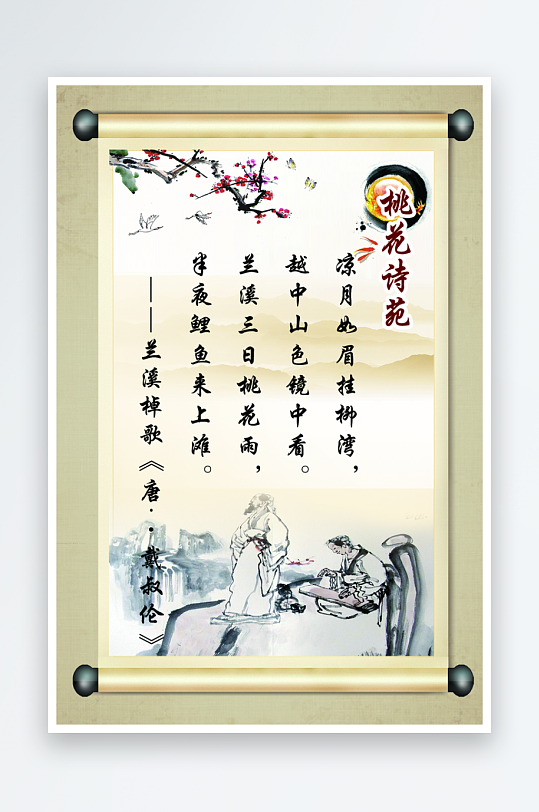 桃花诗苑
凉月如眉挂柳湾，
越中山色镜中看。
兰溪三日桃花雨，
半夜鲤鱼来上滩。
——兰溪棹歌《唐··戴叔伦》